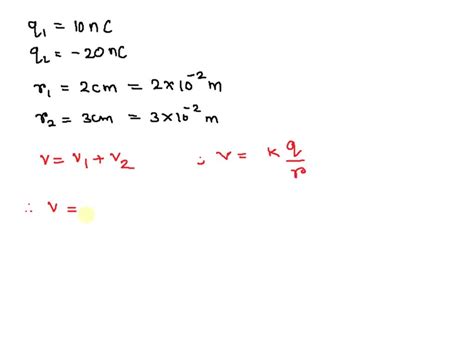 q₁ = 10 nC
q₂ = -20 nC
r₁ = 2cm = 2×10⁻² m
r₂ = 3cm = 3×10⁻² m
V = V₁ + V₂ ∵ V = K q/r
∴ V =